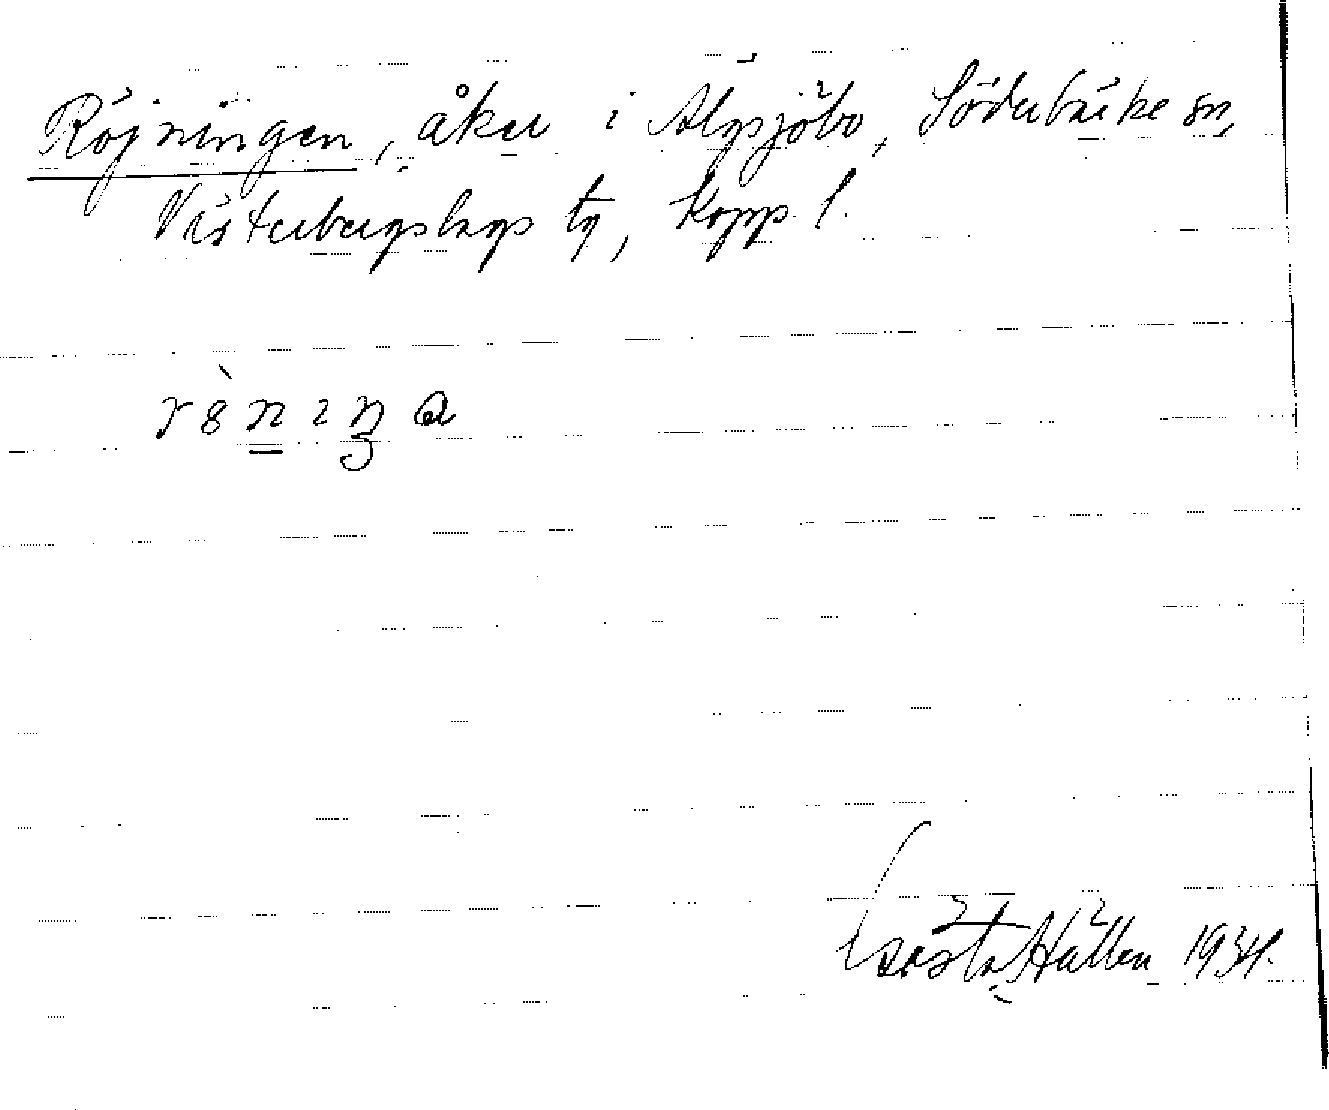 Röjningen, åker i Älgsjöbo, Söderbärke sn,
Västerbergslags tg, Kopp. l.
Gösta Hallén 1934.